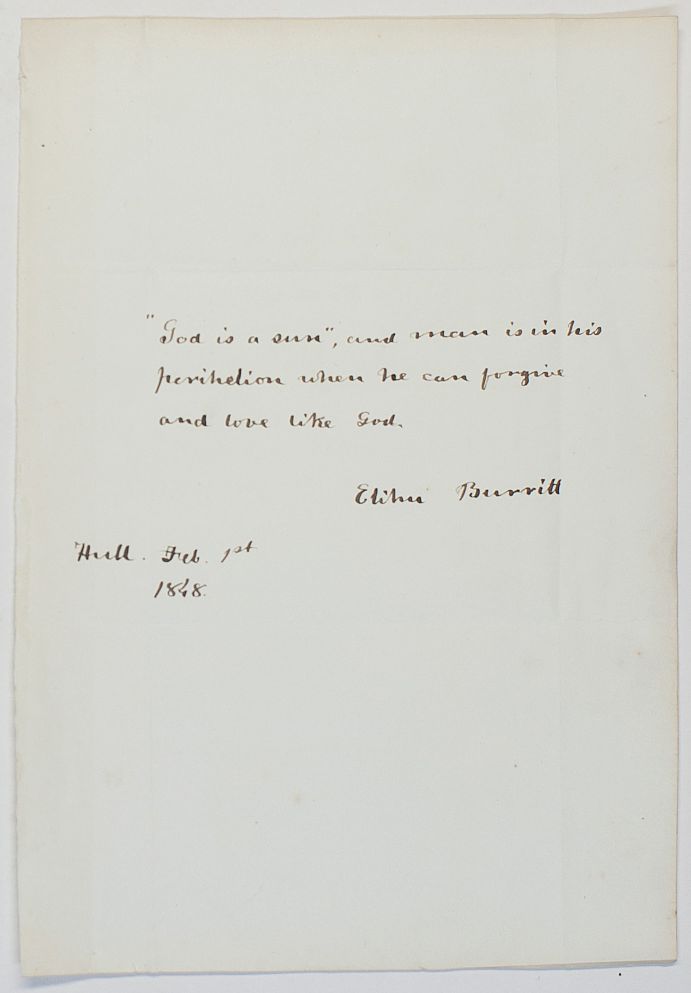 "God is a sun", and man is in his
perihelion when he can forgive
and love like God.
Elihu Burritt
Hull. Feb. 1st
1848.